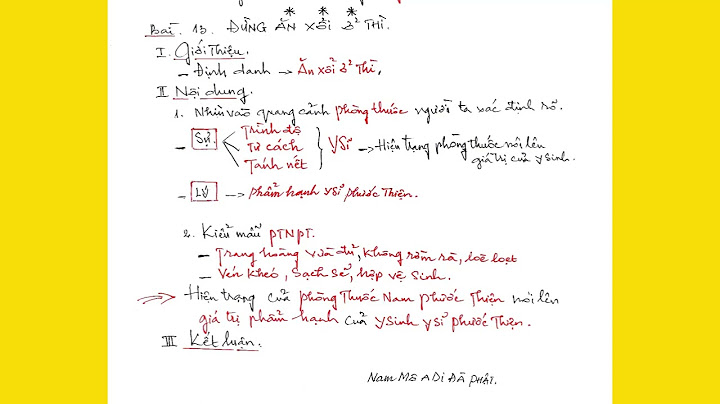 * * *
Bài. 13. ĐỪNG ĂN XỔI Ở THÌ.
I. Giới Thiệu.
- Định danh → Ăn xổi ở Thì.
II Nội dung.
1. Nhìn vào quang cảnh phòng thuốc người ta xác định rõ.
- Sự. Trình độ Tư cách Tánh nết } Y Sĩ → Hiện trạng phòng thuốc nói lên
giá trị của y sinh.
- LÝ → phẩm hạnh y sĩ phước Thiện.
2. Kiểu mẫu PTNPT.
- Trang hoàng vừa đủ, không rờm rà, loè loẹt
- Vén khéo, Sạch sẽ, hợp vệ sinh.
⇒ Hiện trạng của phòng Thuốc Nam phước Thiện nói lên
giá trị phẩm hạnh của y sinh y sĩ phước Thiện.
III Kết luận.
Nam Mô A Di Đà Phật.